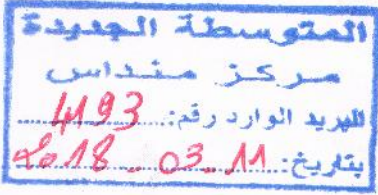 المتوسطة الجديدة
مركز منداس
للبريد الوارد رقم: 4193
بتاريخ: 2018-03-11